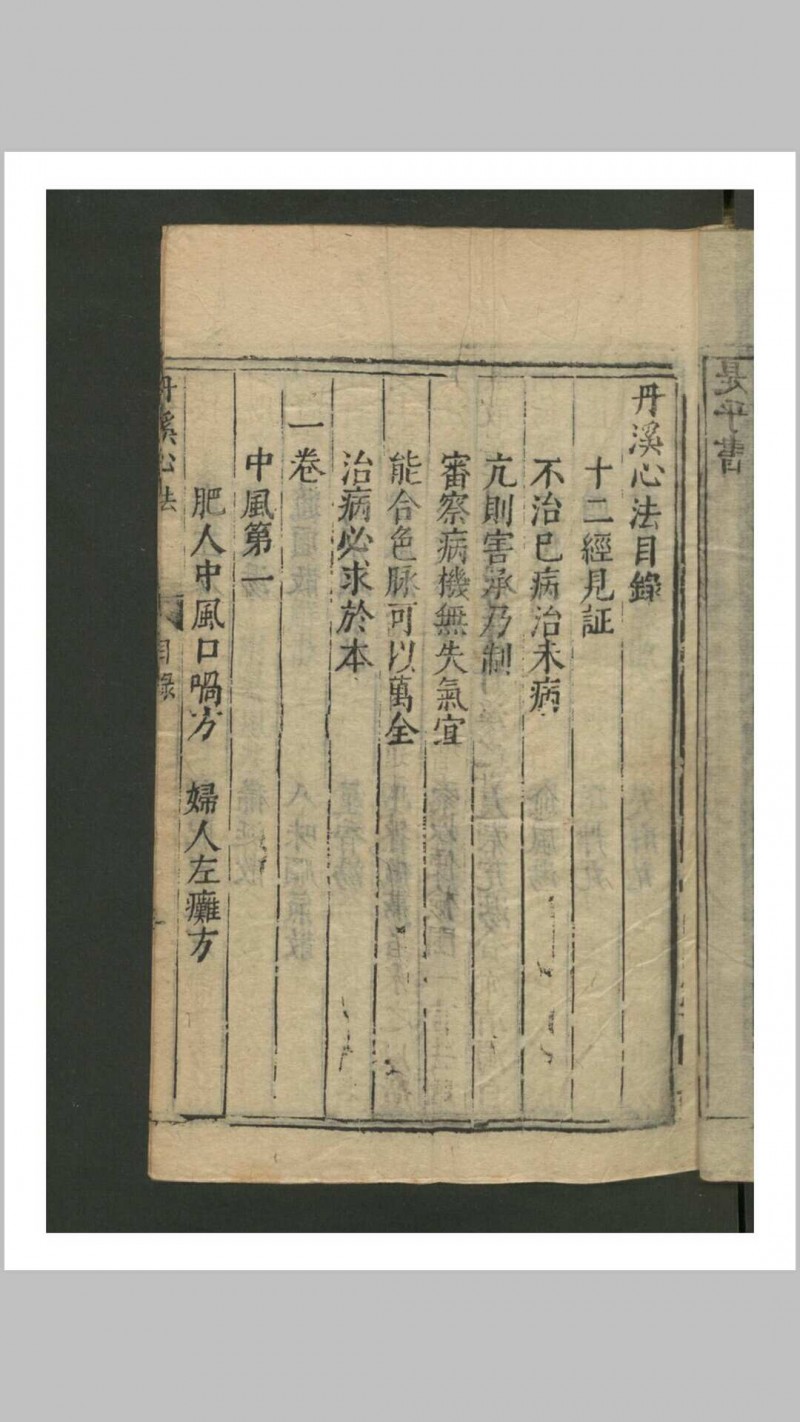 丹溪心法目錄
十二經見証
不治已病治未病
亢則害承乃制
審察病機無失氣宜
能合色脉可以萬全
治病必求於本
一卷
中風第一
肥人中風口喎方　婦人左癱方
丹溪心法　目錄